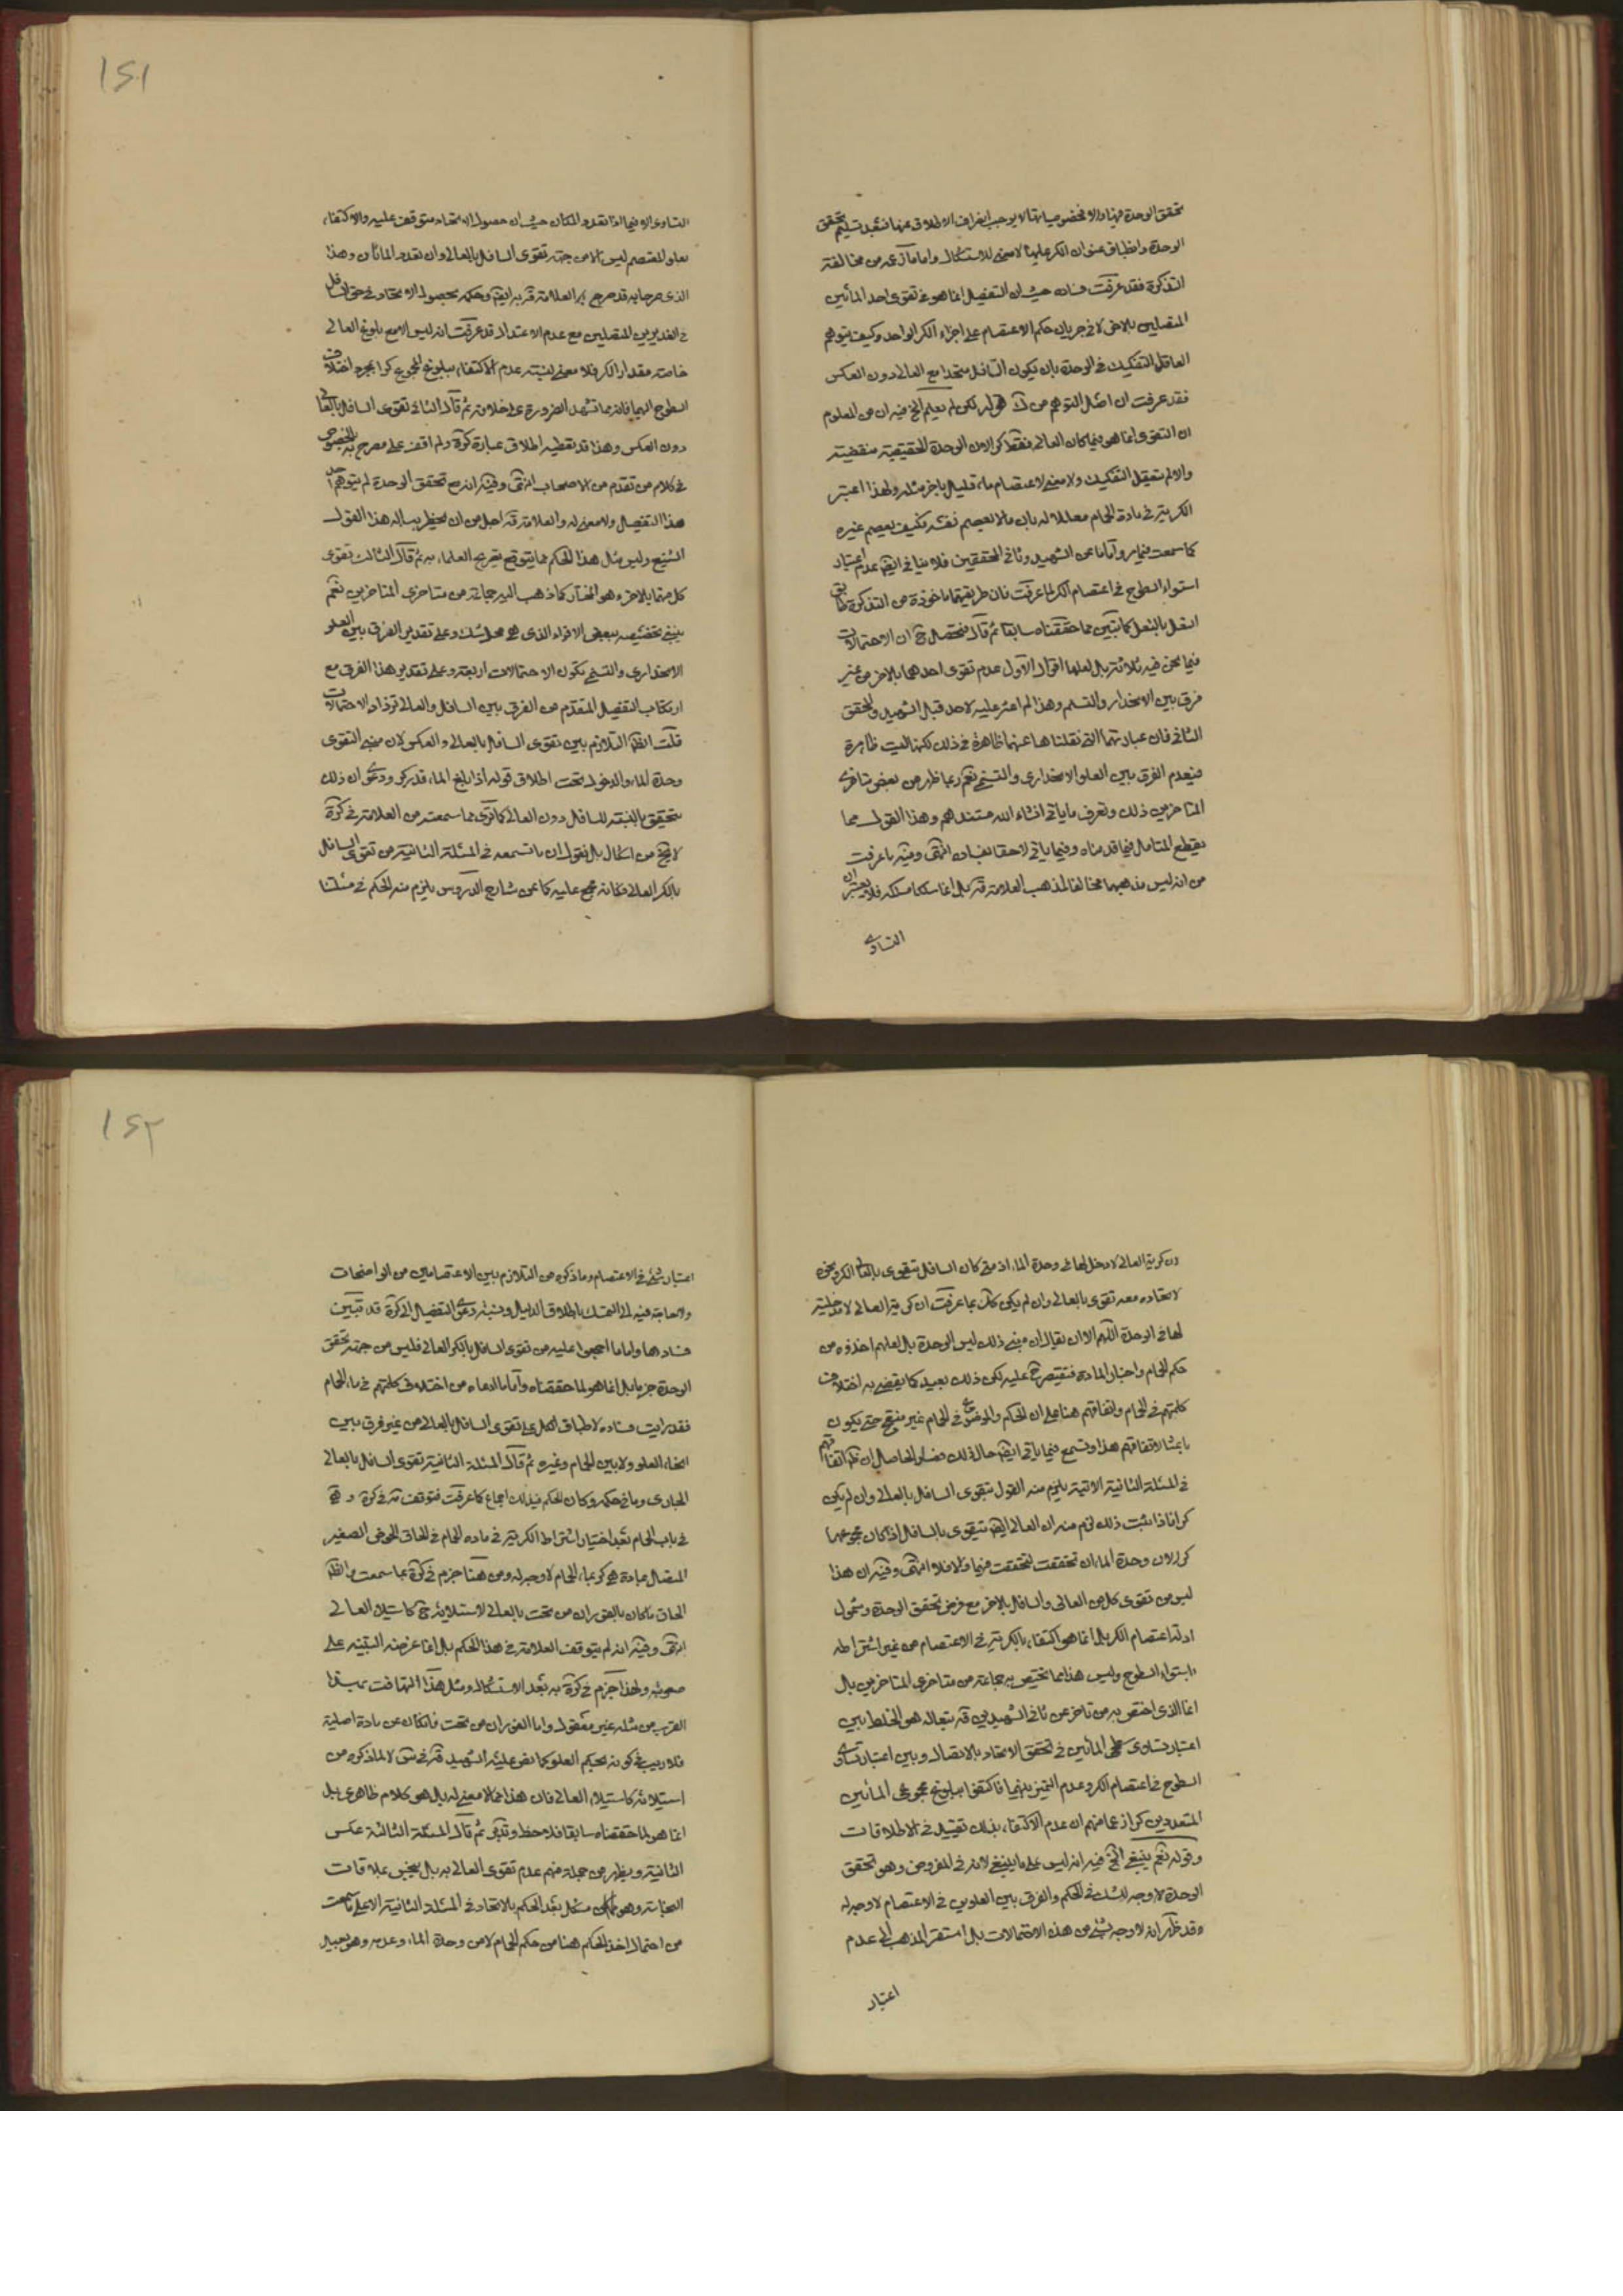 ١٤١
تحقق الوحدة فيها والا فخصوصياتها لا يوجب انصراف الاطلاق عنها فبعد تسليم تحقق
الوحدة وانطباق عنوان الكر عليها لا معنى للاستشكال واما ما ادعى من مخالفة
التذكرة فقد عرفت فساده حيث ان التفصيل انما هو في تقوى احد المائين
المتصلين بالاخر لا في جريان حكم الاعتصام على اجزاء الكر الواحد وكيف يتوهم
العاقل التفكيك في الوحدة بان يكون السافل متحدا مع العالى دون العكس
فقد عرفت ان اصل التوهم من قوله لكن لم يعلم الخ فيه ان من المعلوم
ان التقوى انما هو فيما كان العالى فقط كرا لان الوحدة الحقيقية منقضية
والا لم يتعقل التفكيك ولا معنى لاعتصام ماء قليل باخر مثله ولهذا اعتبر
الكرية في مادة الحمام معللا له بان ما لا يعصم نفسه فكيف يعصم غيره
كما سمعت فيما مر واما ما عن الشهيد وثانى المحققين فلا ينافى ايضا عدم اعتبار
استواء السطوح في اعتصام الكر لما عرفت فان طريقتهما ماخوذة من التذكرة طابق
النعل بالنعل كما تبين مما حققناه سابقا ثم قال فتحصل ح ان الاحتمالات
فيما نحن فيه ثلاثة بل لعلها اقوال الاول عدم تقوى احدهما بالاخر من غير
فرق بين الانحدار والتسنم وهذا لم اعثر عليه لاحد قبل الشهيد والمحقق
الثانى فان عبارتهما التى نقلناها عنهما ظاهرة في ذلك لكنها ليست ظاهرة
فيعدم الفرق بين العلو الانحدارى والتسنمى نعم ربما ظهر من بعض متاخرى
المتاخرين ذلك وتعرف ما ياتى انشاء الله مستندهم وهذا القول مما
يقطع المتامل فيما قدمناه وفيما ياتى لاحقا بفساده انتهى وفيه ما عرفت
من انه ليس مذهبهما مخالفا لمذهب العلامة قده بل انما سلكا مسلكه فلا يعتبران
التساوى
التساوى الا فيما اذا تعدد المكان حيث ان حصول الاتحاد متوقف عليه والاكتفاء
بعلو المعتصم ليس الا من جهة تقوى السافل بالعالى وان تعدد الماءان وهذا
الذى صرحا به قد صرح به العلامة قده ايضا وحكم بحصول الاتحاد في حق السافل
في الغديرين المتصلين مع عدم الاعتدال قد عرفت انه ليس الا مع بلوغ العالى
خاصة مقدار الكر فلا معنى لنسبة عدم الاكتفاء ببلوغ المجموع كرا بمجرد اختلاف
السطوح اليهما فانه مما تشهد الضرورة على خلافه ثم قال الثانى تقوى السافل بالعالى
دون العكس وهذا قد يقطيه اطلاق عبارة كرة ولم اقف على مصرح به بالخصوص
في كلام من تقدم من الاصحاب انتهى وفيه انه مع تحقق الوحدة لم يتوهم احد
هذا التفصيل ولا معنى له والعلامة قده اجل من ان يخطر بباله هذا القول
الشنيع وليس مثل هذا الحكم مما يتوقع تصريح العلماء به ثم قال الثالث تقوى
كل منهما بالاخر وهو المختار كما ذهب اليه جماعة من متاخرى المتاخرين نعم
ينبغى تخصيصه ببعض الافراد الذى هو محل الشك وعلى تقدير الفرق بين العلو
الانحدارى والتسنمى تكون الاحتمالات اربعة وعلى تقدير هذا الفرق مع
ارتكاب التفصيل المتقدم من الفرق بين السافل والعالى تزداد الاحتمالات
قلت الظاهر التلازم بين تقوى السافل بالعالى والعكس لان مبنى التقوى
وحدة الماء والدخول تحت اطلاق قوله اذا بلغ الماء قدر كر ودعوى ان ذلك
يتحقق بالنسبة للسافل دون العالى كما ترى مما سمعته من العلامة في كرة
لا يخ من اشكال بل نقول ان ما تسمعه في المسئلة الثانية من تقوى السافل
بالكر العالى فكانه مجمع عليه كما عن شارح الدروس يلزم منه الحكم في مسئلتنا
١٤٢
لان كرية العالى لا دخل لها في وحدة الماء اذ متى كان السافل يتقوى بالعالى الكر ويجزى
لاتحاده معه تقوى بالعالى وان لم يكن كك بما عرفت ان كرية العالى لا مدخلية
لها في الوحدة اللهم الا ان يقال ان مبنى ذلك ليس الوحدة بل لعلهم اخذوه من
حكم الحمام واخبار المادة فنقتصر ح عليه لكن ذلك بعيد كما يقضى به اختلاف
كلمتهم في الحمام واتفاقهم هنا على ان الحكم والموضوع في الحمام غير منقح حتى يكون
باعثا لاتفاقهم هذا وتسمع فيما ياتى ايضا حال ذلك فصار الحاصل ان ظاهر اتفاقهم
في المسئلة الثانية الاتية يلزم منه القول بتقوى السافل بالعالى وان لم يكن
كرا فاذا ثبت ذلك لزم منه ان العالى ايضا يتقوى بالسافل اذا كان مجموعهما
كرا لان وحدة الماء ان تحققت تحققت فيهما والا فلا انتهى وفيه ان هذا
ليس من تقوى كل من العالى والسافل بالاخر مع فرض تحقق الوحدة وشمول
ادلة اعتصام الكر بل انما هو اكتفاء بالكرية في الاعتصام من غير اشتراطه
باستواء السطوح وليس هذا مما يختص به جماعة من متاخرى المتاخرين بل
انما الذى اختص به من تاخر عن ثانى الشهيدين قده تعالى هو الخلط بين
اعتبار تساوى سطحى المائين في تحقق الاتحاد بالاتصال وبين اعتبار تساوى
السطوح في اعتصام الكر وعدم التميز بينهما فاكتفوا ببلوغ مجموعى المائين
المتعددين كرا زعما منهم ان عدم الاكتفاء بذلك تقييد في الاطلاقات
وقوله نعم ينبغى الخ فيه انه ليس على ما ينبغى لانه في المفروض وهو تحقق
الوحدة لا وجه للشك في الحكم والفرق بين العلوين في الاعتصام لا وجه له
وقد ظهر انه لا وجه لشىء من هذه الاحتمالات بل استقر المذهب الى عدم
اعتبار
اعتبار شىء في الاعتصام وما ذكره من التلازم بين الاعتصامين من الواضحات
والحاجة فيه الى التمسك باطلاق الدليل ونسبة دعوى التفصيل الى كرة قد تبين
فسادها واما ما اجمعوا عليه من تقوى السافل بالكر العالى فليس من جهة تحقق
الوحدة جزما بل انما هو لما حققناه واما ما ادعاه من اختلاف كلمتهم في ماء الحمام
فقد رايت فساده لاطباق الكل على تقوى السافل بالعالى من غير فرق بين
انحاء العلو ولا بين الحمام وغيره ثم قال المسئلة الثانية تقوى السافل بالعالى
الجارى وما في حكمه وكان الحكم فيه لك اجماع كما عرفت فتوقف فيه في كرة و هى
في باب الحمام بعد اختيار اشتراط الكرية في مادة الحمام في الحاق الحوض الصغير
المتصل بمادة هي كر بماء الحمام لا وجه له ومن هنا جزم في كرة بما سمعت والظاهر
الحاق ما كان بالفوران من تحت بالعالى لاستلائه ح كاستيلاء العالى
انتهى وفيه انه لم يتوقف العلامة في هذا الحكم بل انما غرضه التنبيه على
صعوبته ولهذا جزم في كرة به بعد الاستشكال ومثل هذا التهافت بهذا
القرب من مثله غير معقول واما الفوران من تحت فان كان عن مادة اصلية
فلا ريب في كونه بحكم العلو كما نص عليه الشهيد قده في س لا لما ذكره من
استيلائه كاستيلاء العالى فان هذا مما لا معنى له بل هو كلام ظاهرى بل
انما هو لما حققناه سابقا فلاحظ وتدبر ثم قال المسئلة الثالثة عكس
الثانية ويظهر من جملة منهم عدم تقوى العالى به بل ينجس بملاقات
النجاسة وهو مشكل بعد الحكم بالاتحاد في المسئلة الثانية الا على ما سمعت
من احتمال اخذ الحكم هنا من حكم الحمام لا من وحدة الماء وعدمه وهو بعيد